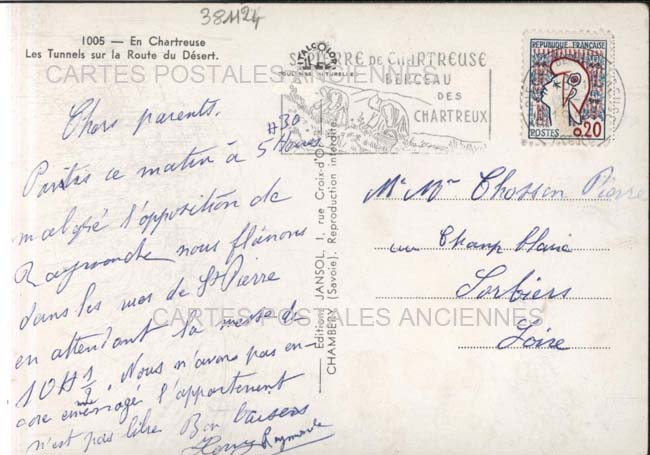 38424
1005 — En Chartreuse
Les Tunnels sur la Route du Désert.
CARTES POSTALES ANCIENNES
ITALCOLOR
ST PIERRE DE CHARTREUSE
BERCEAU
DES
CHARTREUX
RÉPUBLIQUE FRANÇAISE
POSTES 0,20
Chers parents.
Partis ce matin à 5 Heures 30
malgré l'opposition de
Raymonde nous flânons
dans les rues de St Pierre
en attendant la messe de
10H 1/2. Nous n'avons pas en-
core emménagé l'appartement
n'est pas libre Bon baisers
Raymonde
Editions JANSOL, 1, rue Croix-d'Or
CHAMBÉRY (Savoie). Reproduction interdite.
Mr Mme Chossen Pierre
Champ blanc
Sorbiers
Loire
CARTES POSTALES ANCIENNES